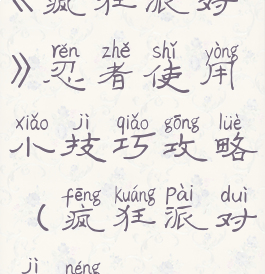 《疯狂派对
rěn zhě shǐ yòng
》忍者使用
xiǎo jì qiǎo gōng lüè
小技巧攻略
fēng kuáng pài duì
（疯狂派对
jì néng